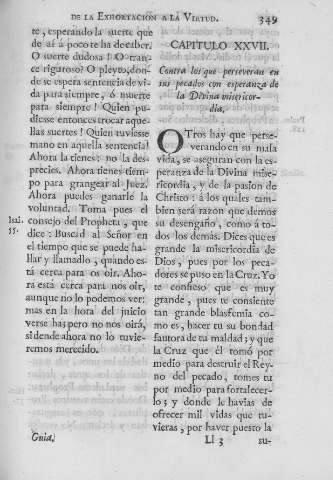 DE LA EXHORTACION A LA VIRTUD. 349
te, esperando la suerte que
de aì a poco te ha de caber.
O suerte dudosa! O tran-
ce riguroso! O pleyto, don-
de se espera sentencia de vi-
da para siempre, ó muerte
para siempre! Quien pu-
diesse entonces trocar aque-
llas suertes! Quien tuviesse
mano en aquella sentencia!
Ahora la tienes: no la des-
precies. Ahora tienes tiem-
po para grangear al Juez.
Ahora puedes ganarle la
voluntad. Toma pues el
Isai. 55.
consejo del Propheta, que
dice: Buscad al Señor en
el tiempo que se puede ha-
llar y llamadlo, quando es-
tá cerca para os oir. Aho-
ra está cerca para nos oir,
aunque no lo podemos ver:
mas en la hora del juicio
verse ha; pero no nos oirá,
si dende ahora no lo tuvie-
remos merecido.
Guia.
CAPITULO XXVII.
Contra los que perseveran en
sus pecados con esperanza de
la Divina misericor-
dia.
OTros hay que perse-
verando en su mala
vida, se aseguran con la es-
peranza de la Divina mise-
ricordia, y de la pasion de
Christo: á los quales tam-
bien será razon que demos
su desengaño, como á to-
dos demás. Dices que es
grande la misericordia de
Dios, pues por los peca-
dores se puso en la Cruz. Yo
te confieso que es muy
grande, pues te consiente
tan grande blasfemia co-
mo es, hacer tu su bondad
fautora de tu maldad; y que
la Cruz que él tomó por
medio para destruir el Rey-
no del pecado, tomes tu
por medio para fortalecer-
lo; y donde le havias de
ofrecer mil vidas que tu-
vieras, por haver puesto la
Ll 3 su-